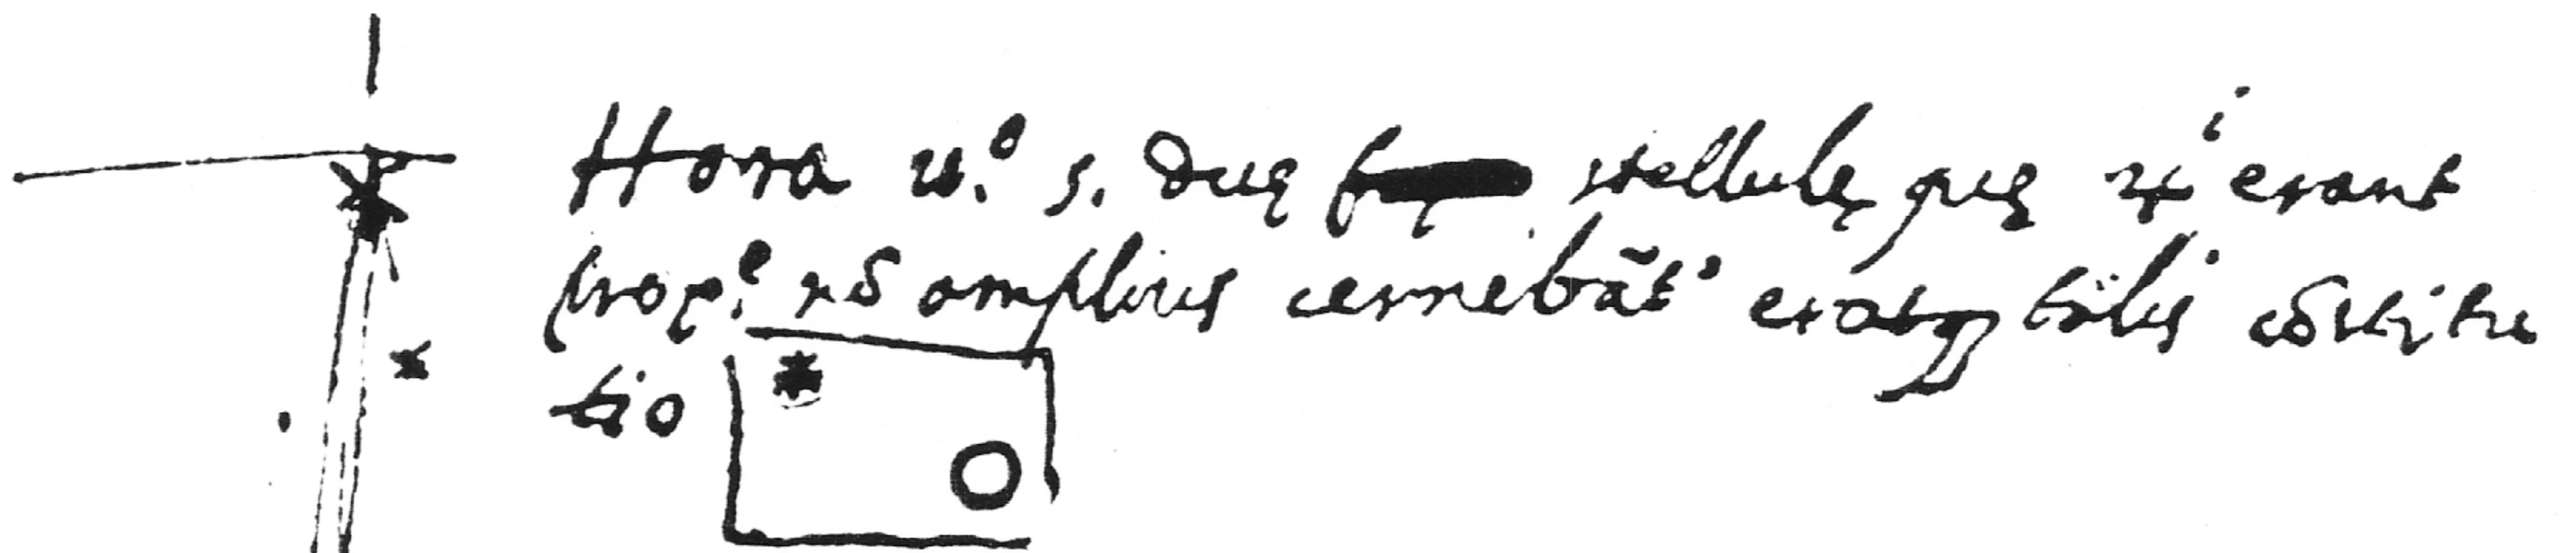 Hora u.º s. duę stellulę quę ♃ⁱ erant
prop.e nō amplius cernebāt' eratq; talis cōstitu
tio